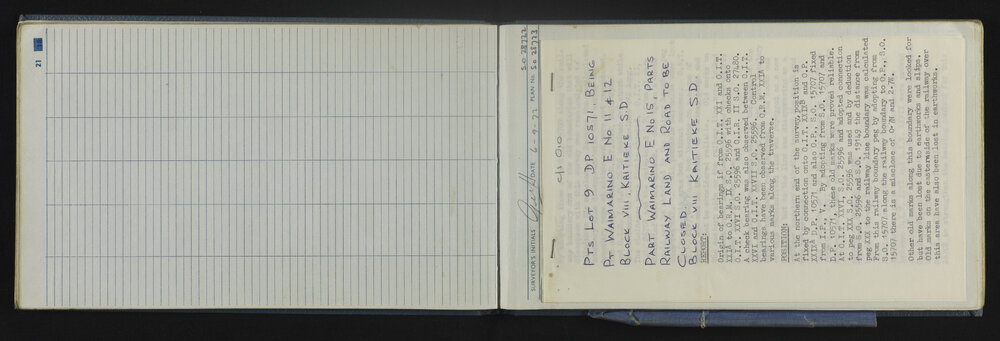 21
S.O 28722
SURVEYOR'S INITIALS DATE 6-9-72 PLAN No. S.O 28723
C/S 010
PTS LOT 9 DP 10571, BEING
PT WAIMARINO E No 11 & 12
BLOCK VIII, KAITIEKE S.D
PART WAIMARINO E No 15, PARTS
RAILWAY LAND AND ROAD TO BE
CLOSED
BLOCK VIII KAITIEKE S.D.
REPORT:
Origin of bearings if from O.I.T. XXI and O.I.T.
XXIA to O.R.M. IX S.O. 25596 with checks onto
O.I.T. XXVI S.O. 25596 and O.I.R. II S.O. 27480.
A check bearing was also observed between O.I.T.
XXVI and O.I.T. XXVII S.O. 25596. Control
bearings have been observed from O.R.M. XXIA to
various marks along the traverse.
POSITION:
At the northern end of the survey, position is
fixed by connection onto O.I.T. XXIXB and O.P.
XXIXA D.P. 10571 and also O.P., S.O. 15707 fixed
from I.P. V. By adopting from S.O. 15707 and
D.P. 10571, these old marks were proved reliable.
At O.I.T. XXVI, S.O. 25596 and adopted connection
to peg XXX S.O. 25596 was used and by deduction
from S.O. 25596 and S.O. 19149 the distance from
peg XXX to the railway line boundary was calculated
From this railway boundary peg by adopting from
S.O. 15707 along the railway boundary to O.P., S.O.
15707 there is a misclose of
Other old marks along this boundary were looked for
but have been lost due to earthworks and slips.
Old marks on the easternside of the railway over
this area have also been lost in earthworks.